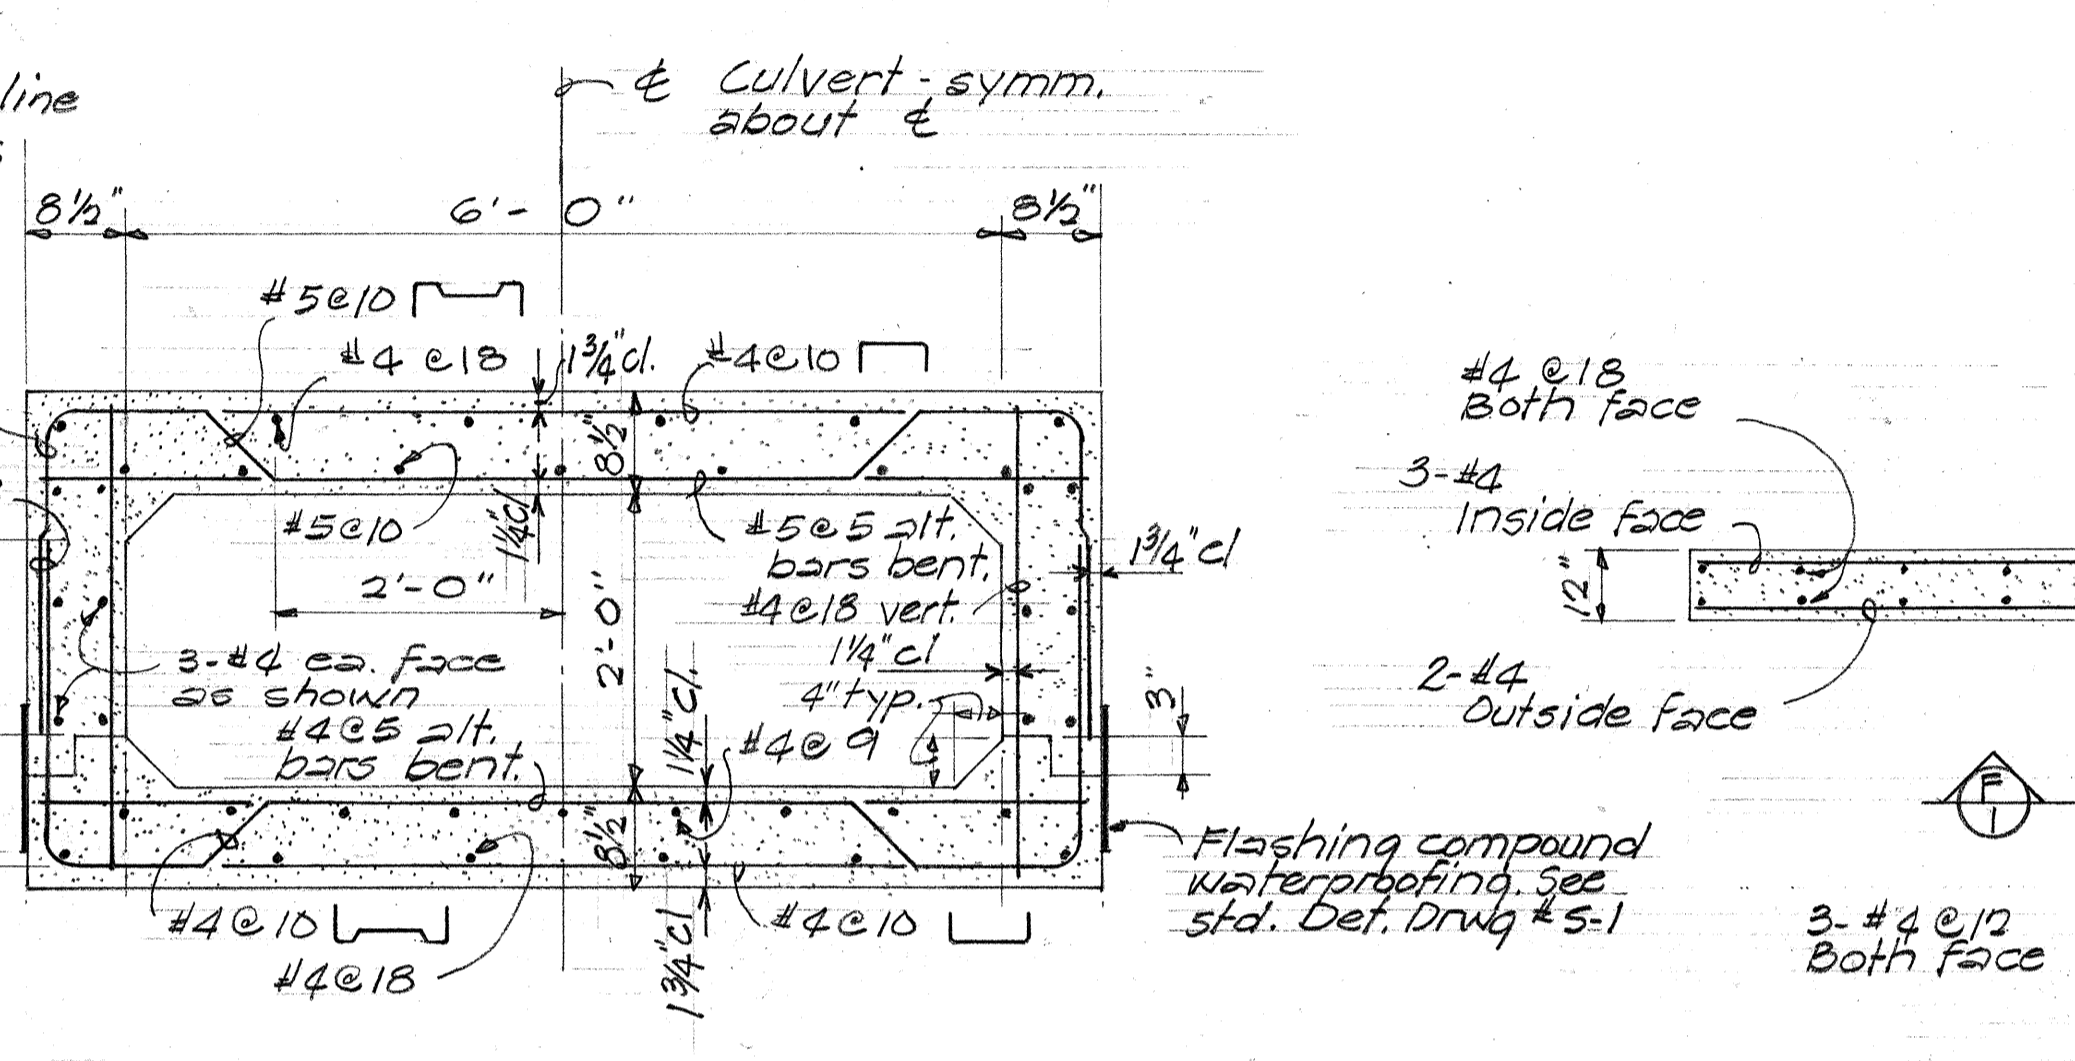 line
℄ Culvert - symm.
about ℄
8½"
6'-0"
8½"
#5@10
#4 @18
1¾"cl.
#4@10
8½"
#5@10
1¼"cl
#5@5 alt.
bars bent.
1¾"cl
2'-0"
2'-0"
#4@18 vert.
1¼"cl
4"typ.
3"
3-#4 ea. face
as shown
#4@5 alt.
bars bent.
1¼"cl.
#4@9
8½"
#4@10
#4@18
1¾"cl
#4@10
Flashing compound
waterproofing. See
std. Det. Drwg #S-1
#4 @18
Both face
3-#4
Inside face
12"
2-#4
Outside face
F
1
3-#4@12
Both face